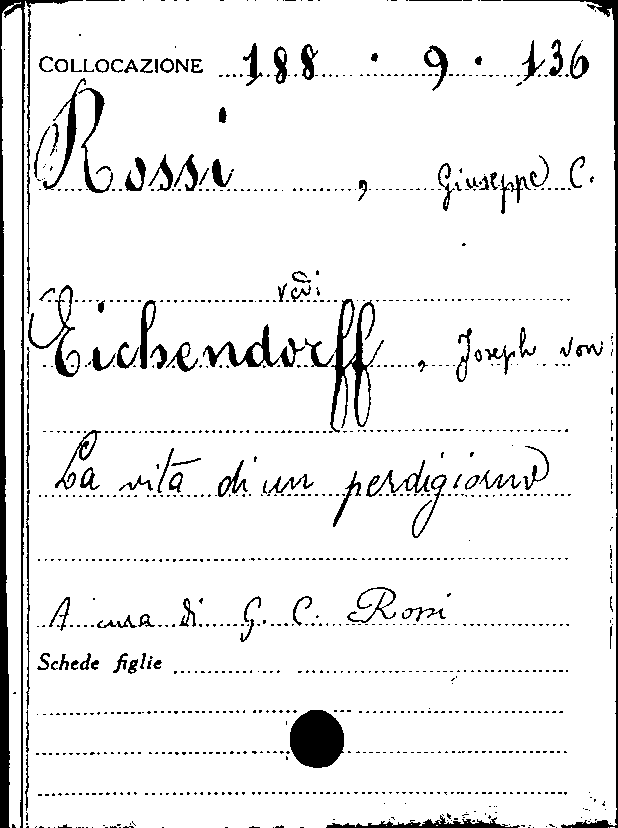 COLLOCAZIONE 188 · 9 · 136
Rossi , Giuseppe C.
vedi
Eichendorff , Joseph von
La vita di un perdigiorno
A cura di G. C. Rossi
Schede figlie